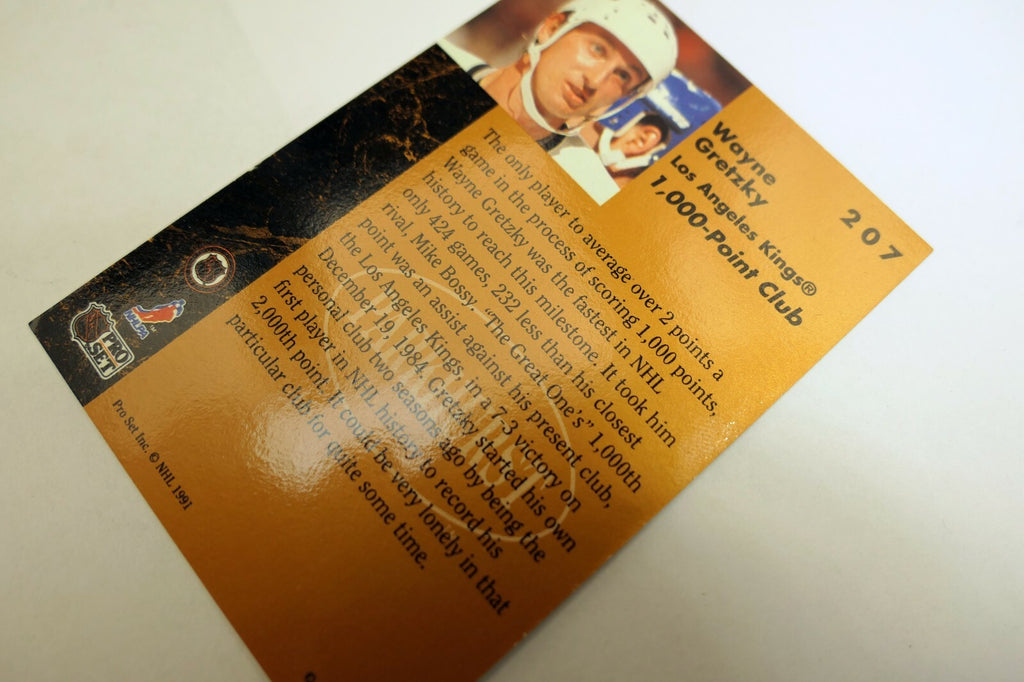 207
Wayne
Gretzky
Los Angeles Kings®
1,000-Point Club
The only player to average over 2 points a
game in the process of scoring 1,000 points,
Wayne Gretzky was the fastest in NHL
history to reach this milestone. It took him
only 424 games, 232 less than his closest
rival, Mike Bossy. "The Great One's" 1,000th
point was an assist against his present club,
the Los Angeles Kings, in a 7-3 victory on
December 19, 1984. Gretzky started his own
personal club two seasons ago by being the
first player in NHL history to record his
2,000th point. It could be very lonely in that
particular club for quite some time.
NHLPA
PRO
SET
Pro Set Inc. © NHL 1991